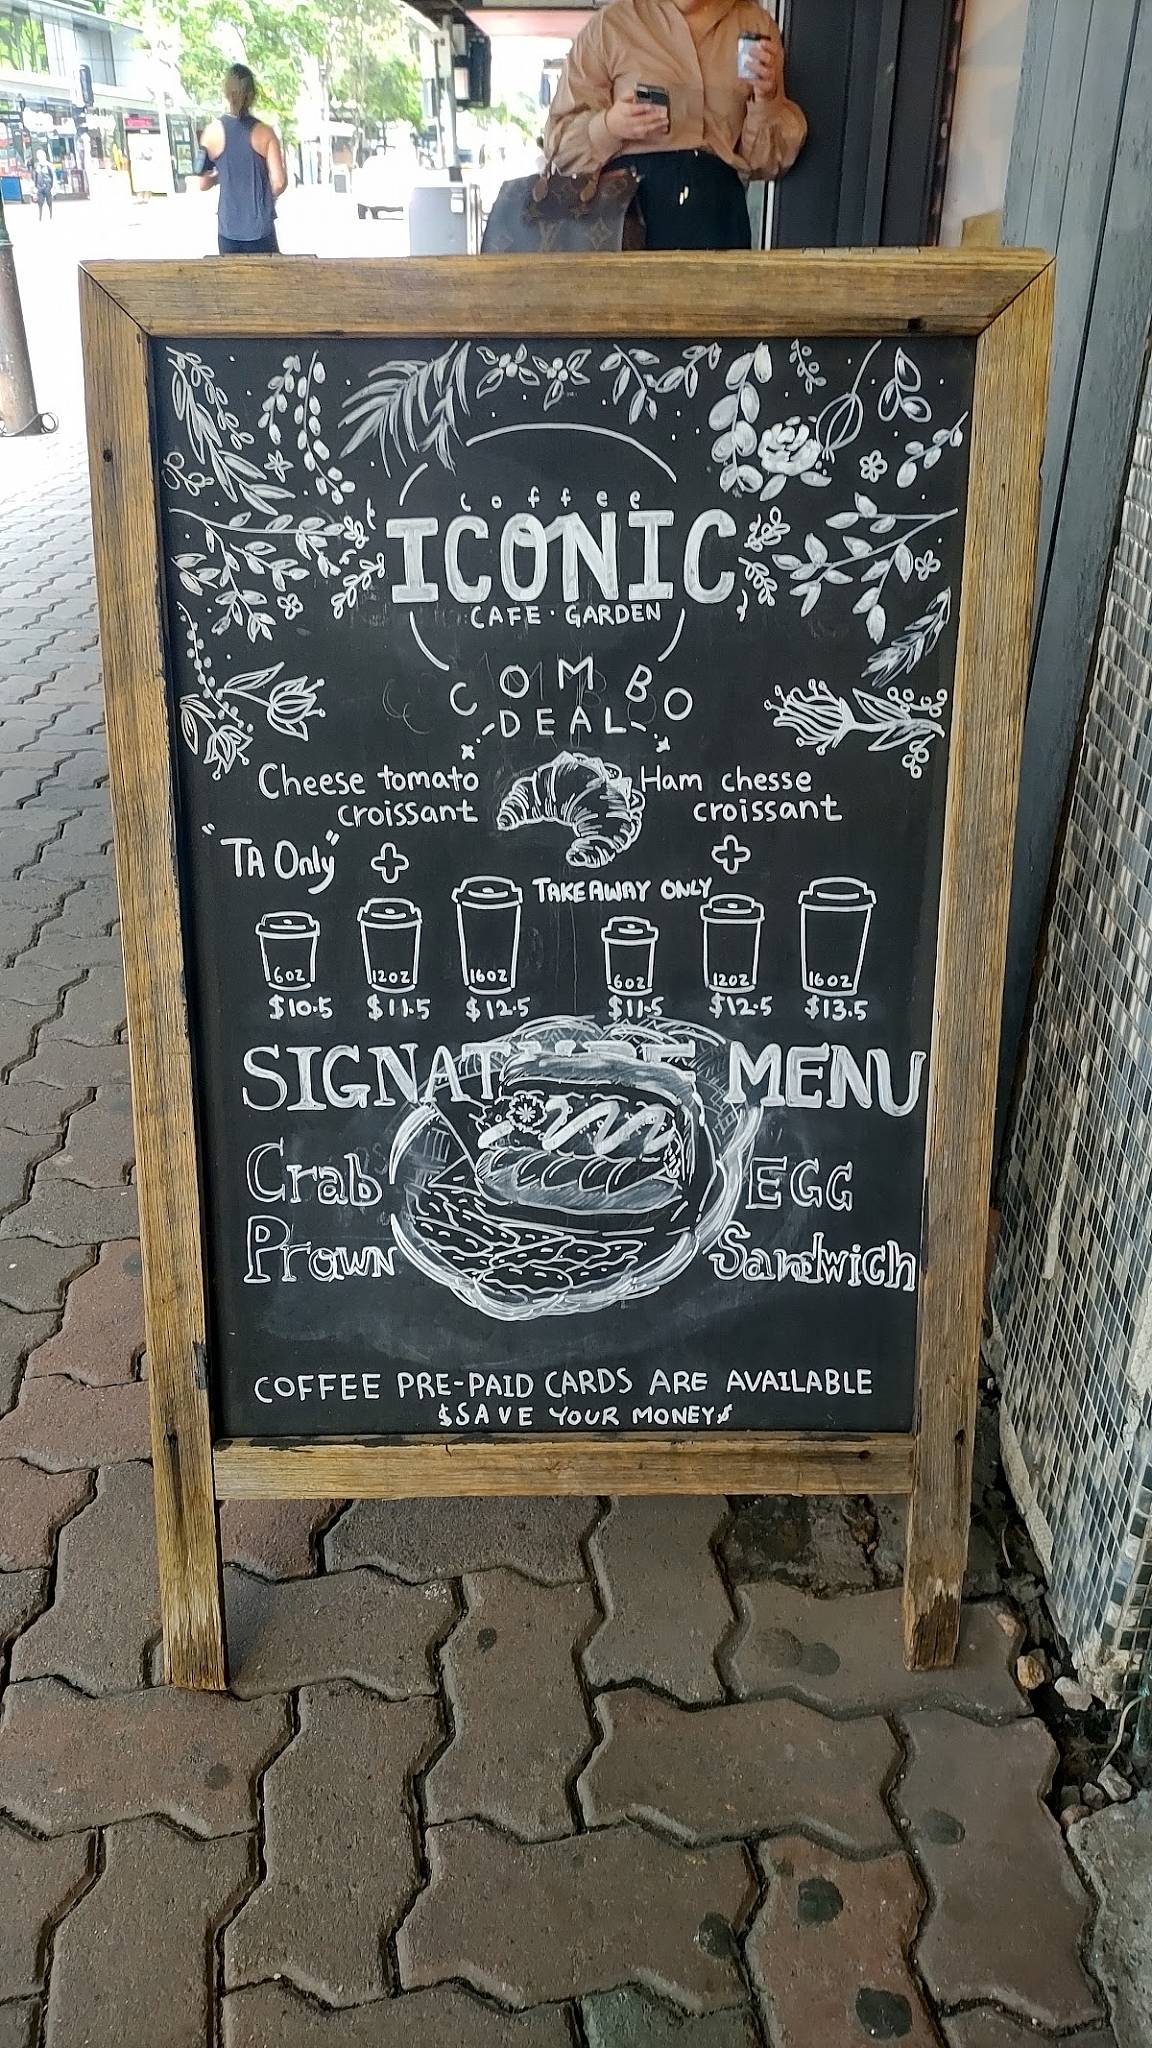 coffee
ICONIC
CAFE · GARDEN
COMBO
DEAL
Cheese tomato
croissant
Ham chesse
croissant
"TA Only"
+
+
TAKEAWAY ONLY
6OZ 12OZ 16OZ
6OZ 12OZ 16OZ
$10.5 $11.5 $12.5
$11.5 $12.5 $13.5
SIGNATURE MENU
Crab
Prawn
EGG
Sandwich
COFFEE PRE-PAID CARDS ARE AVAILABLE
$SAVE YOUR MONEY$